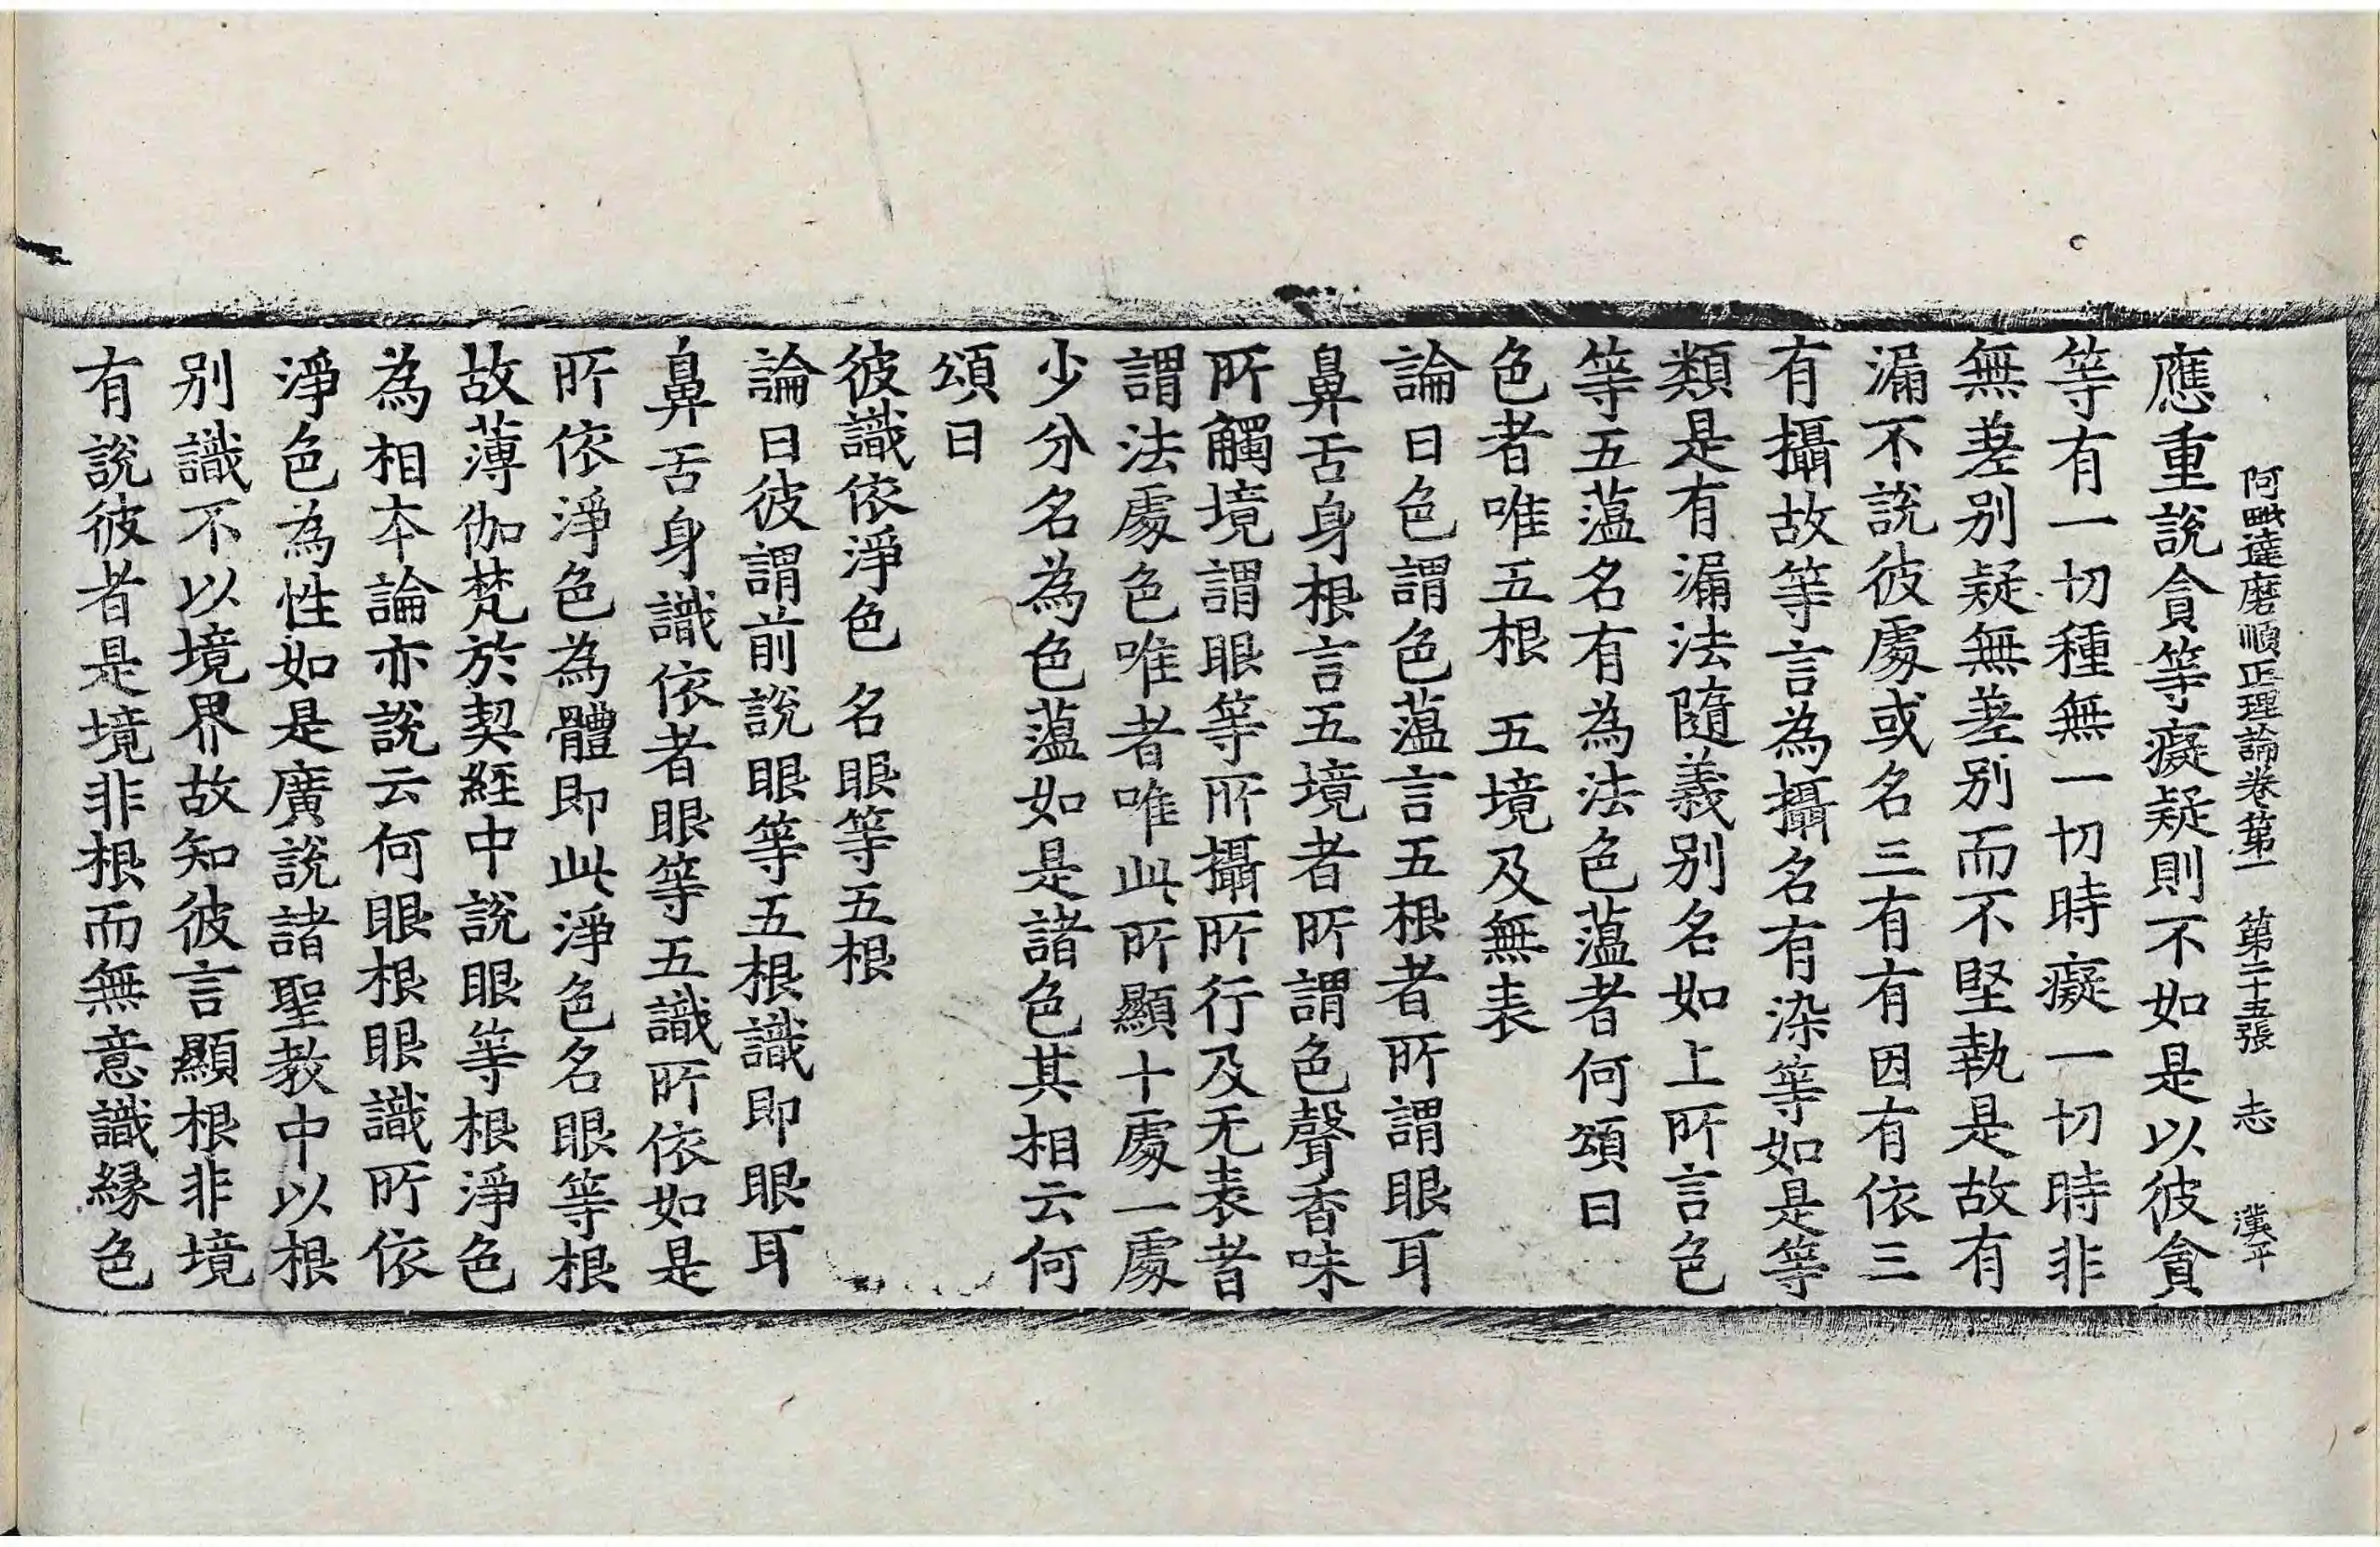 阿毗達磨順正理論卷第一　第二十五張　志　漢平
應重說貪等癡疑則不如是以彼貪
等有一切種無一切時癡一切時非
無差别疑無差别而不堅執是故有
漏不說彼處或名三有有因有依三
有攝故等言為攝名有染等如是等
類是有漏法隨義别名如上所言色
等五薀名有為法色薀者何頌曰
色者唯五根　五境及無表
論曰色謂色薀言五根者所謂眼耳
鼻舌身根言五境者所謂色聲香味
所觸境謂眼等所攝所行及无表者
謂法處色唯者唯此所顯十處一處
少分名為色薀如是諸色其相云何
頌曰
彼識依淨色　名眼等五根
論曰彼謂前說眼等五根識即眼耳
鼻舌身識依者眼等五識所依如是
所依淨色為體即此淨色名眼等根
故薄伽梵於契經中說眼等根淨色
為相本論亦說云何眼根眼識所依
淨色為性如是廣說諸聖教中以根
别識不以境界故知彼言顯根非境
有說彼者是境非根而無意識緣色